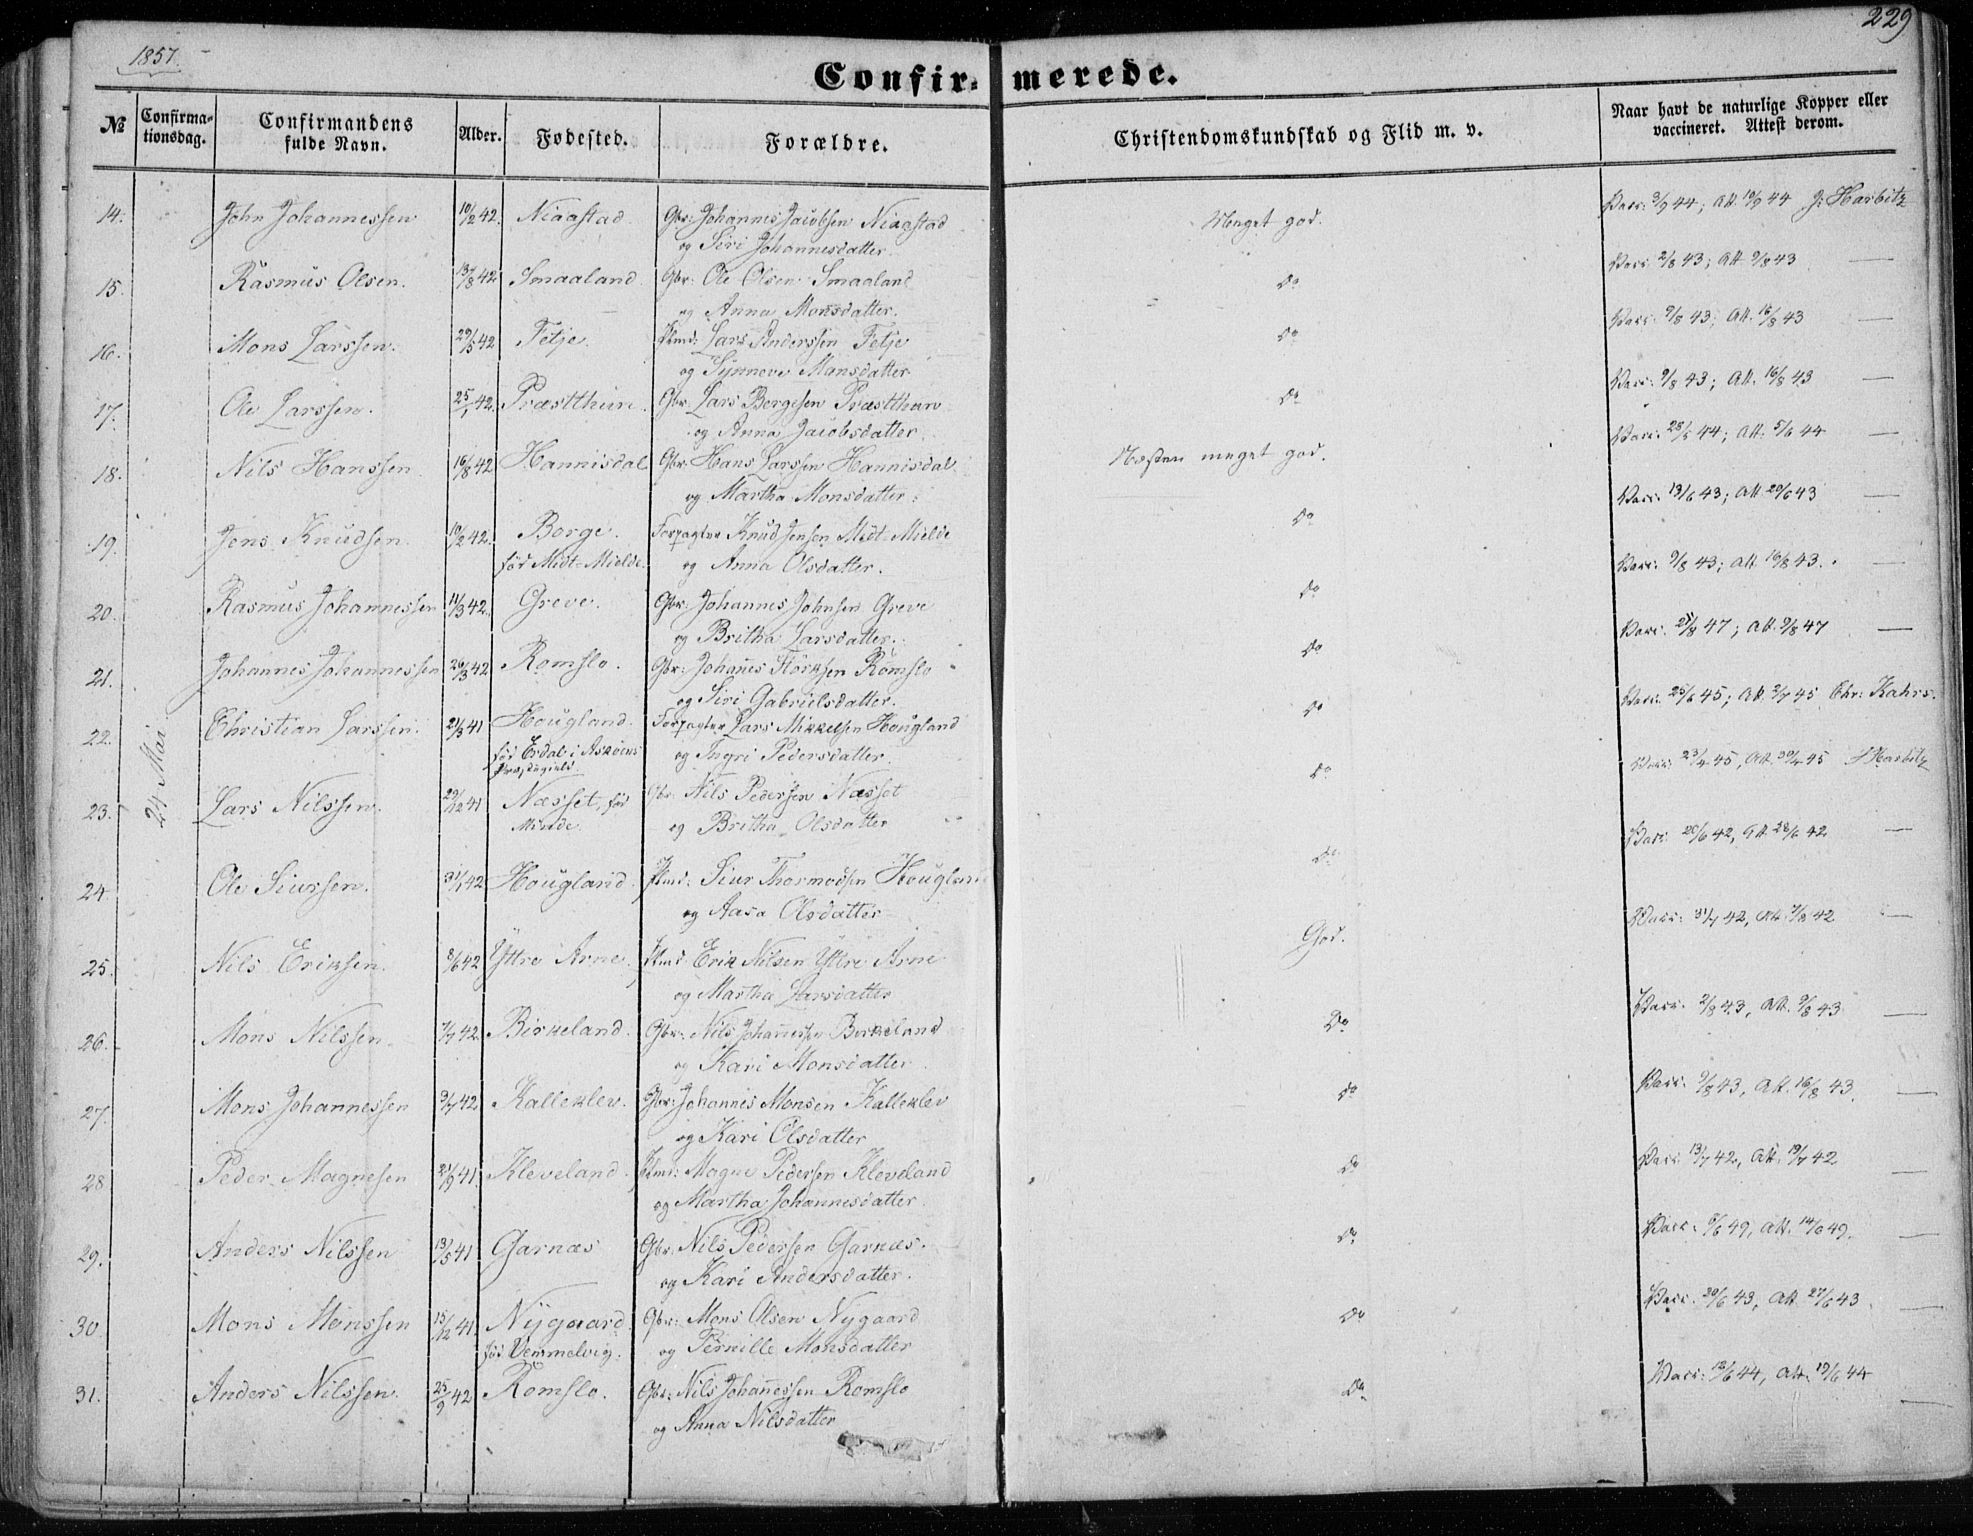 229
1857.
Confirmerede.
№ Confirmationsdag. Confirmandens fulde Navn. Alder. Fødested. Forældre. Christendomskundskab og Flid m. v. Naar havt de naturlige Kopper eller vaccineret. Attest derom.
24 Mai
14. John Johannessen 10/2 42. Niaastad Gbr: Johannes Jacobsen Niaastad Meget god. Vacc: 3/9 44; Att. 10/9 44 J. Harbitz
og Siri Johannesdatter.
15. Rasmus Olsen. 13/8 42 Smaaland Gbr: Ole Olsen Smaaland Do Vacc. 2/8 43; Att. 9/8 43 —
og Anna Monsdatter.
16. Mons Larssen. 29/5 42 Fetje. Hmd: Lars Anderssen Fetje Do Vacc. 9/8 43; Att. 16/8 43 —
og Synneve Monsdatter
17. Ole Larssen. 25/1 42. Præstthun. Gbr. Lars Bergesen Præstthun Do Vacc: 9/8 43; Att. 16/8 43 —
og Anna Jacobsdatter.
18. Nils Hanssen 16/8 42 Hannisdal Gbr: Hans Larssen Hannisdal Næsten meget god. Vacc. 28/5 44; Att. 5/6 44 —
og Martha Monsdatter.
19. Jens Knudsen. 10/2 42. Borge. Forpagter Knud Jensen Midt-Mielde Do Vacc: 13/6 43; Att 20/6 43 —
før Midt-Mielde. og Anna Olsdatter.
20. Rasmus Johannessen 11/3 42. Greve. Gbr: Johannes Johnsen Greve Do Vacc. 9/8 43; Att. 16/8 43. —
og Britha Larsdatter.
21. Johannes Johannessen 26/3 42 Romslo. Gbr: Johañes Størksen Romslo Do Vacc. 2/8 47; Att. 9/8 47 —
og Siri Gabrielsdatter.
22. Christian Larssen. 21/3 41 Hougland. Forpagter Lars Mikkelsen Hougland Do Vacc. 25/6 45; Att. 2/7 45 Chr: Kahrs.
før Erdal i Askøens Præstegield og Ingri Pedersdatter.
23. Lars Nilssen. 29/12 41 Næsset, før Gbr. Nils Pedersen Næsset Do Vacc. 23/4 45, Att. 30/4 45 J Harbitz
Minde. og Britha Olsdatter
24 Ole Siurssen. 31/1 42 Hougland. Hmd: Siur Thormodsen Hougland Do Vacc: 20/6 42, Att 28/6 42 —
og Aasa Olsdatter
25. Nils Eriksen. 8/6 42 Yttre Arne. Hmd Erik Nilsen Yttre Arne God. Vacc: 31/7 42, Att. 7/8 42 —
og Martha Larsdatter
26. Mons Nilssen 7/7 42. Birkeland. Gbr. Nils Johañessen Birkeland Do Vacc. 2/8 43, Att. 9/8 43 —
og Kari Monsdatter
27. Mons Johannessen 3/7 42 Kalleklev. Gbr: Johannes Monsen Kalleklev Do Vacc. 9/8 43, Att. 16/8 43. —
og Kari Olsdatter
28 Peder Magnesen 21/9 41. Kleveland. Hmd: Magne Pedersen Kleveland Do Vacc 13/7 42, Att. 19/7 42 —
og Martha Johannesdatter
29. Anders Nilssen 13/5 41 Garnæs Gbr: Nils Pedersen Garnæs. Do Vacc: 6/6 49, Att. 14/6 49. —
og Kari Andersdatter.
30. Mons Monssen 15/12 41. Nygaard Gbr: Mons Olsen Nygaard Do Vacc. 20/6 43, Att. 27/6 43 —
før Vemmelvig. og Pernille Monsdatter
31. Anders Nilssen 25/9 42 Romslo. Gbr: Nils Johañessen Romslo Do Vacc: 13/6 44, Att. 19/6 44 —
og Anna Nilsdatter